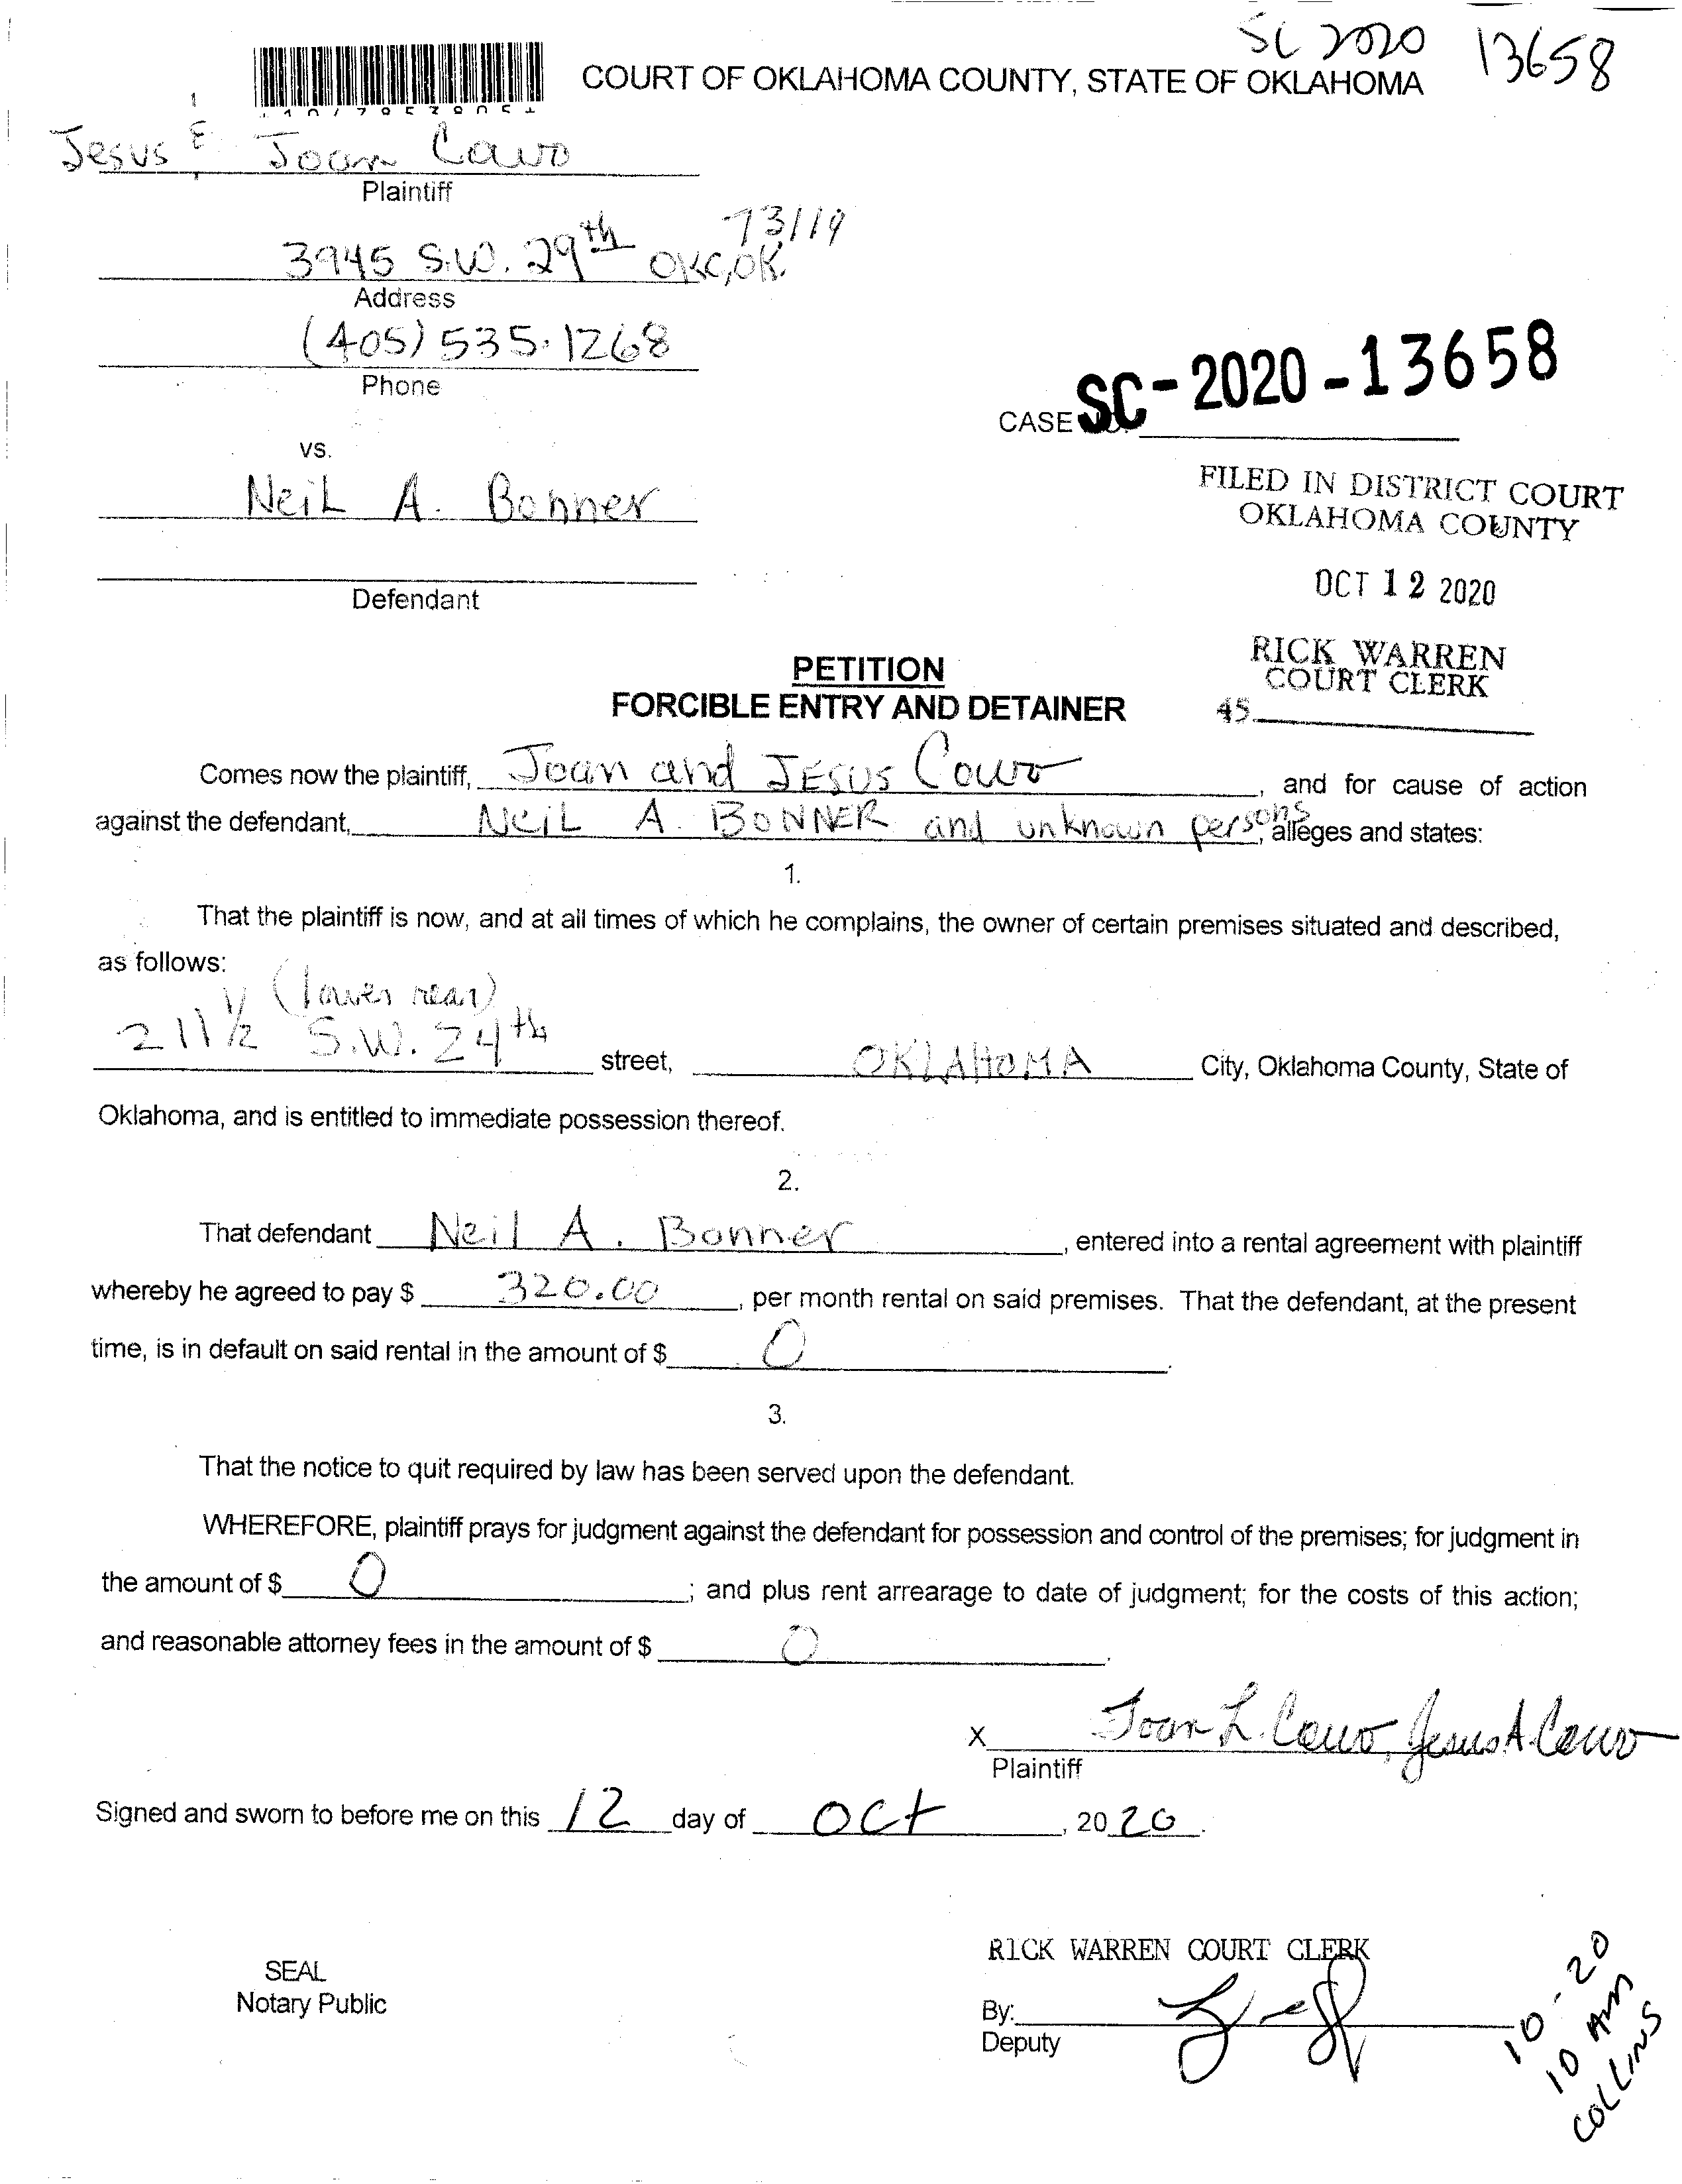 SC 2020 13658
COURT OF OKLAHOMA COUNTY, STATE OF OKLAHOMA
Jesus & Joan Cawo
Plaintiff
73119
3945 S.W. 29th OKC, OK.
Address
(405) 535-1268
Phone
SC-2020-13658
CASE NO.
vs.
Neil A. Bonner
FILED IN DISTRICT COURT
OKLAHOMA COUNTY
OCT 12 2020
Defendant
RICK WARREN
COURT CLERK
45
PETITION
FORCIBLE ENTRY AND DETAINER
Comes now the plaintiff, Joan and JESUS Cawo, and for cause of action
against the defendant, NeiL A. BONNER and unknown persons, alleges and states:
1.
That the plaintiff is now, and at all times of which he complains, the owner of certain premises situated and described,
as follows:
(lower rear)
211 1/2 S.W. 24th street, OKLAHOMA City, Oklahoma County, State of
Oklahoma, and is entitled to immediate possession thereof.
2.
That defendant Neil A. Bonner, entered into a rental agreement with plaintiff
whereby he agreed to pay $ 320.00, per month rental on said premises. That the defendant, at the present
time, is in default on said rental in the amount of $ 0.
3.
That the notice to quit required by law has been served upon the defendant.
WHEREFORE, plaintiff prays for judgment against the defendant for possession and control of the premises; for judgment in
the amount of $ 0; and plus rent arrearage to date of judgment; for the costs of this action;
and reasonable attorney fees in the amount of $ 0.
X Joan L. Cawo, Jesus A. Cawo
Plaintiff
Signed and sworn to before me on this 12 day of Oct, 2020.
RICK WARREN COURT CLERK
SEAL
Notary Public
By:
Deputy
10-20
10 AM
COLLINS